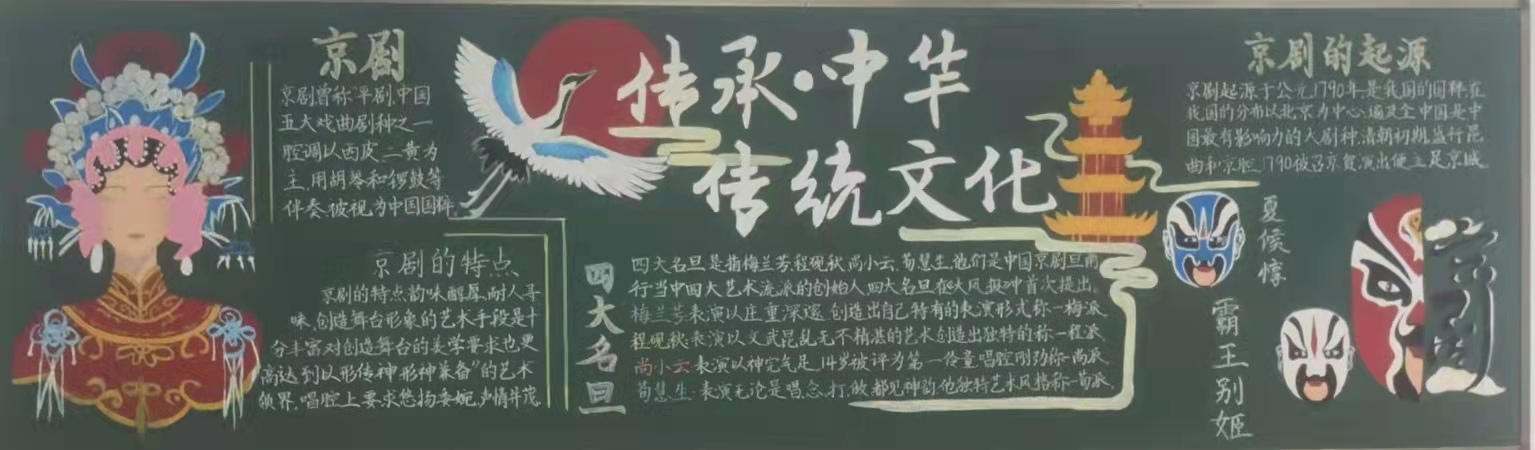 京剧
京剧曾称平剧,中国
五大戏曲剧种之一
腔调以西皮、二黄为
主,用胡琴和锣鼓等
伴奏,被视为中国国粹
京剧的特点
京剧的特点韵味醇厚,耐人寻
味,创造舞台形象的艺术手段是十
分丰富对创造舞台的美学要求也更
高达到以形传神形神兼备"的艺术
领界,唱腔上要求悠扬委婉,声情并茂
传承·中华
传统文化
四大名旦
四大名旦是指梅兰芳,程砚秋,尚小云,荀慧生,他们是中国京剧旦角
行当中四大艺术流派的创始人四大名旦在《大风报》中首次提出,
梅兰芳表演以庄重深邃,创造出自己特有的表演形式称一梅派
程砚秋表演以文武昆乱无不精湛的艺术创造出独特的称一程派
尚小云表演以神完气足,14岁被评为第一伶童唱腔刚劲称一尚派
荀慧生:表演无论是唱、念、打、做都见神韵他独特艺术风格称一荀派
京剧的起源
京剧起源于公元1790年是我国的国粹在
我国的分布以北京为中心遍及全中国是中
国最有影响力的大剧种,清朝初期,盛行昆
曲和京腔,1790被召京贺演出便立足京城
夏候惇
霸王别姬
京剧